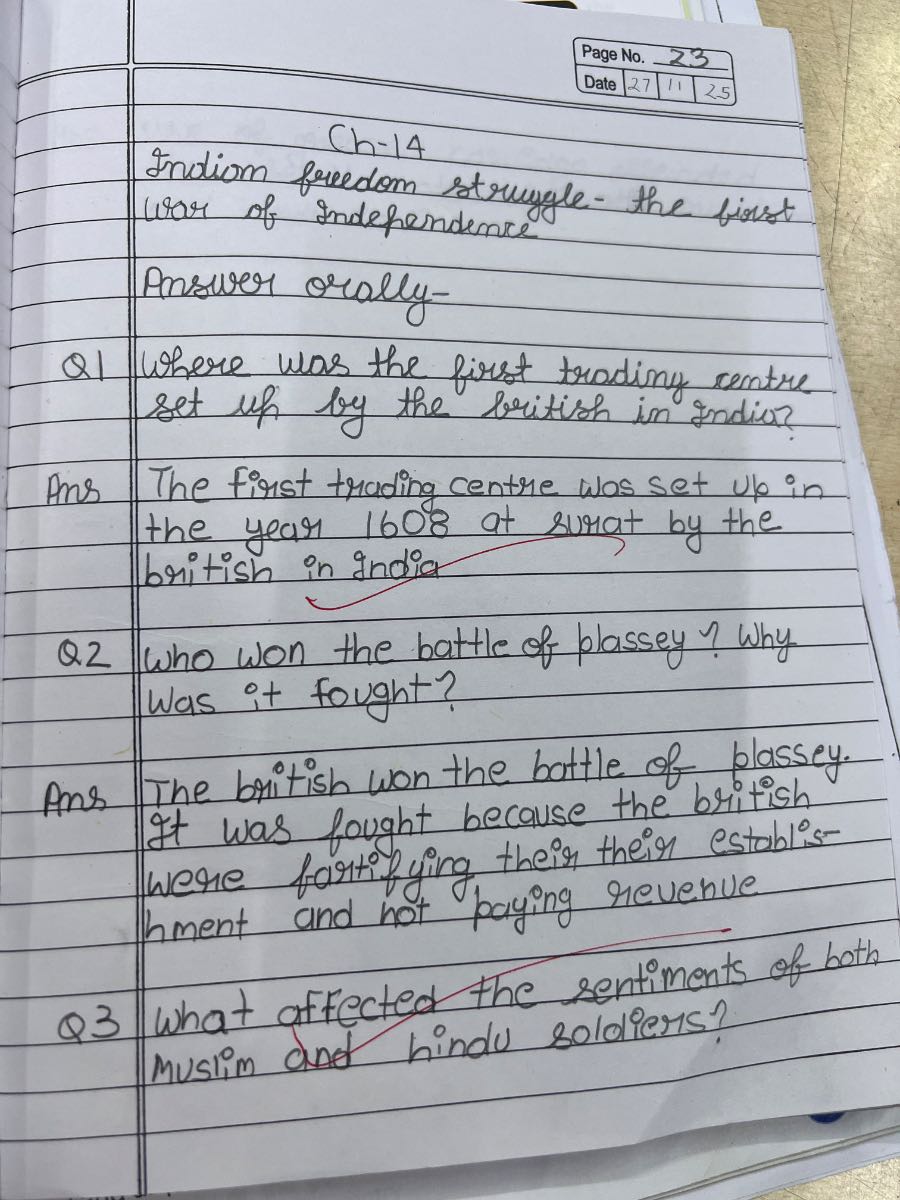 Page No. 23
Date 27 11 25
Ch-14
Indian freedom struggle- the first
war of Independence
Answer orally-
Q1 Where was the first trading centre
set up by the british in India?
Ans The first trading centre was set up in
the year 1608 at surat by the
british in India
Q2 Who won the battle of plassey? Why
was it fought?
Ans The british won the battle of plassey.
It was fought because the british
were fartifying their their establis-
hment and not paying revenue
Q3 What affected the sentiments of both
Muslim and hindu soldiers?